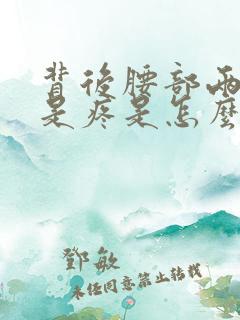 背後腰部兩
是疼是怎麼
鄧敏
未經同意禁止轉載